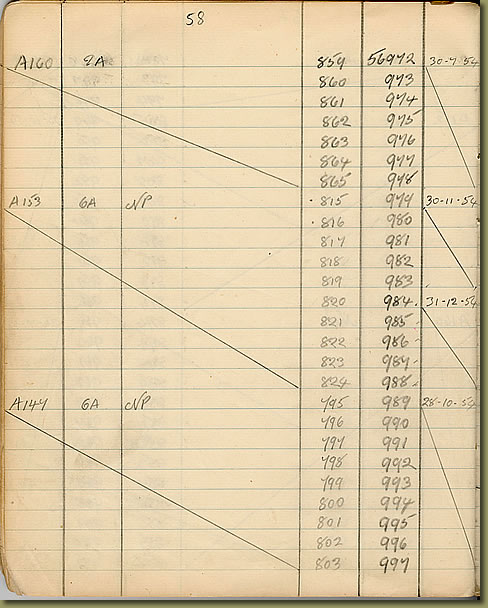 58
A160 2A 859 56972 30-7-54
860 973
861 974
862 975
863 976
864 977
865 978
A153 6A NP 815 979 30-11-54
816 980
817 981
818 982
819 983
820 984 31-12-54
821 985
822 986
823 987
824 988
A147 6A NP 795 989 28-10-54
796 990
797 991
798 992
799 993
800 994
801 995
802 996
803 997